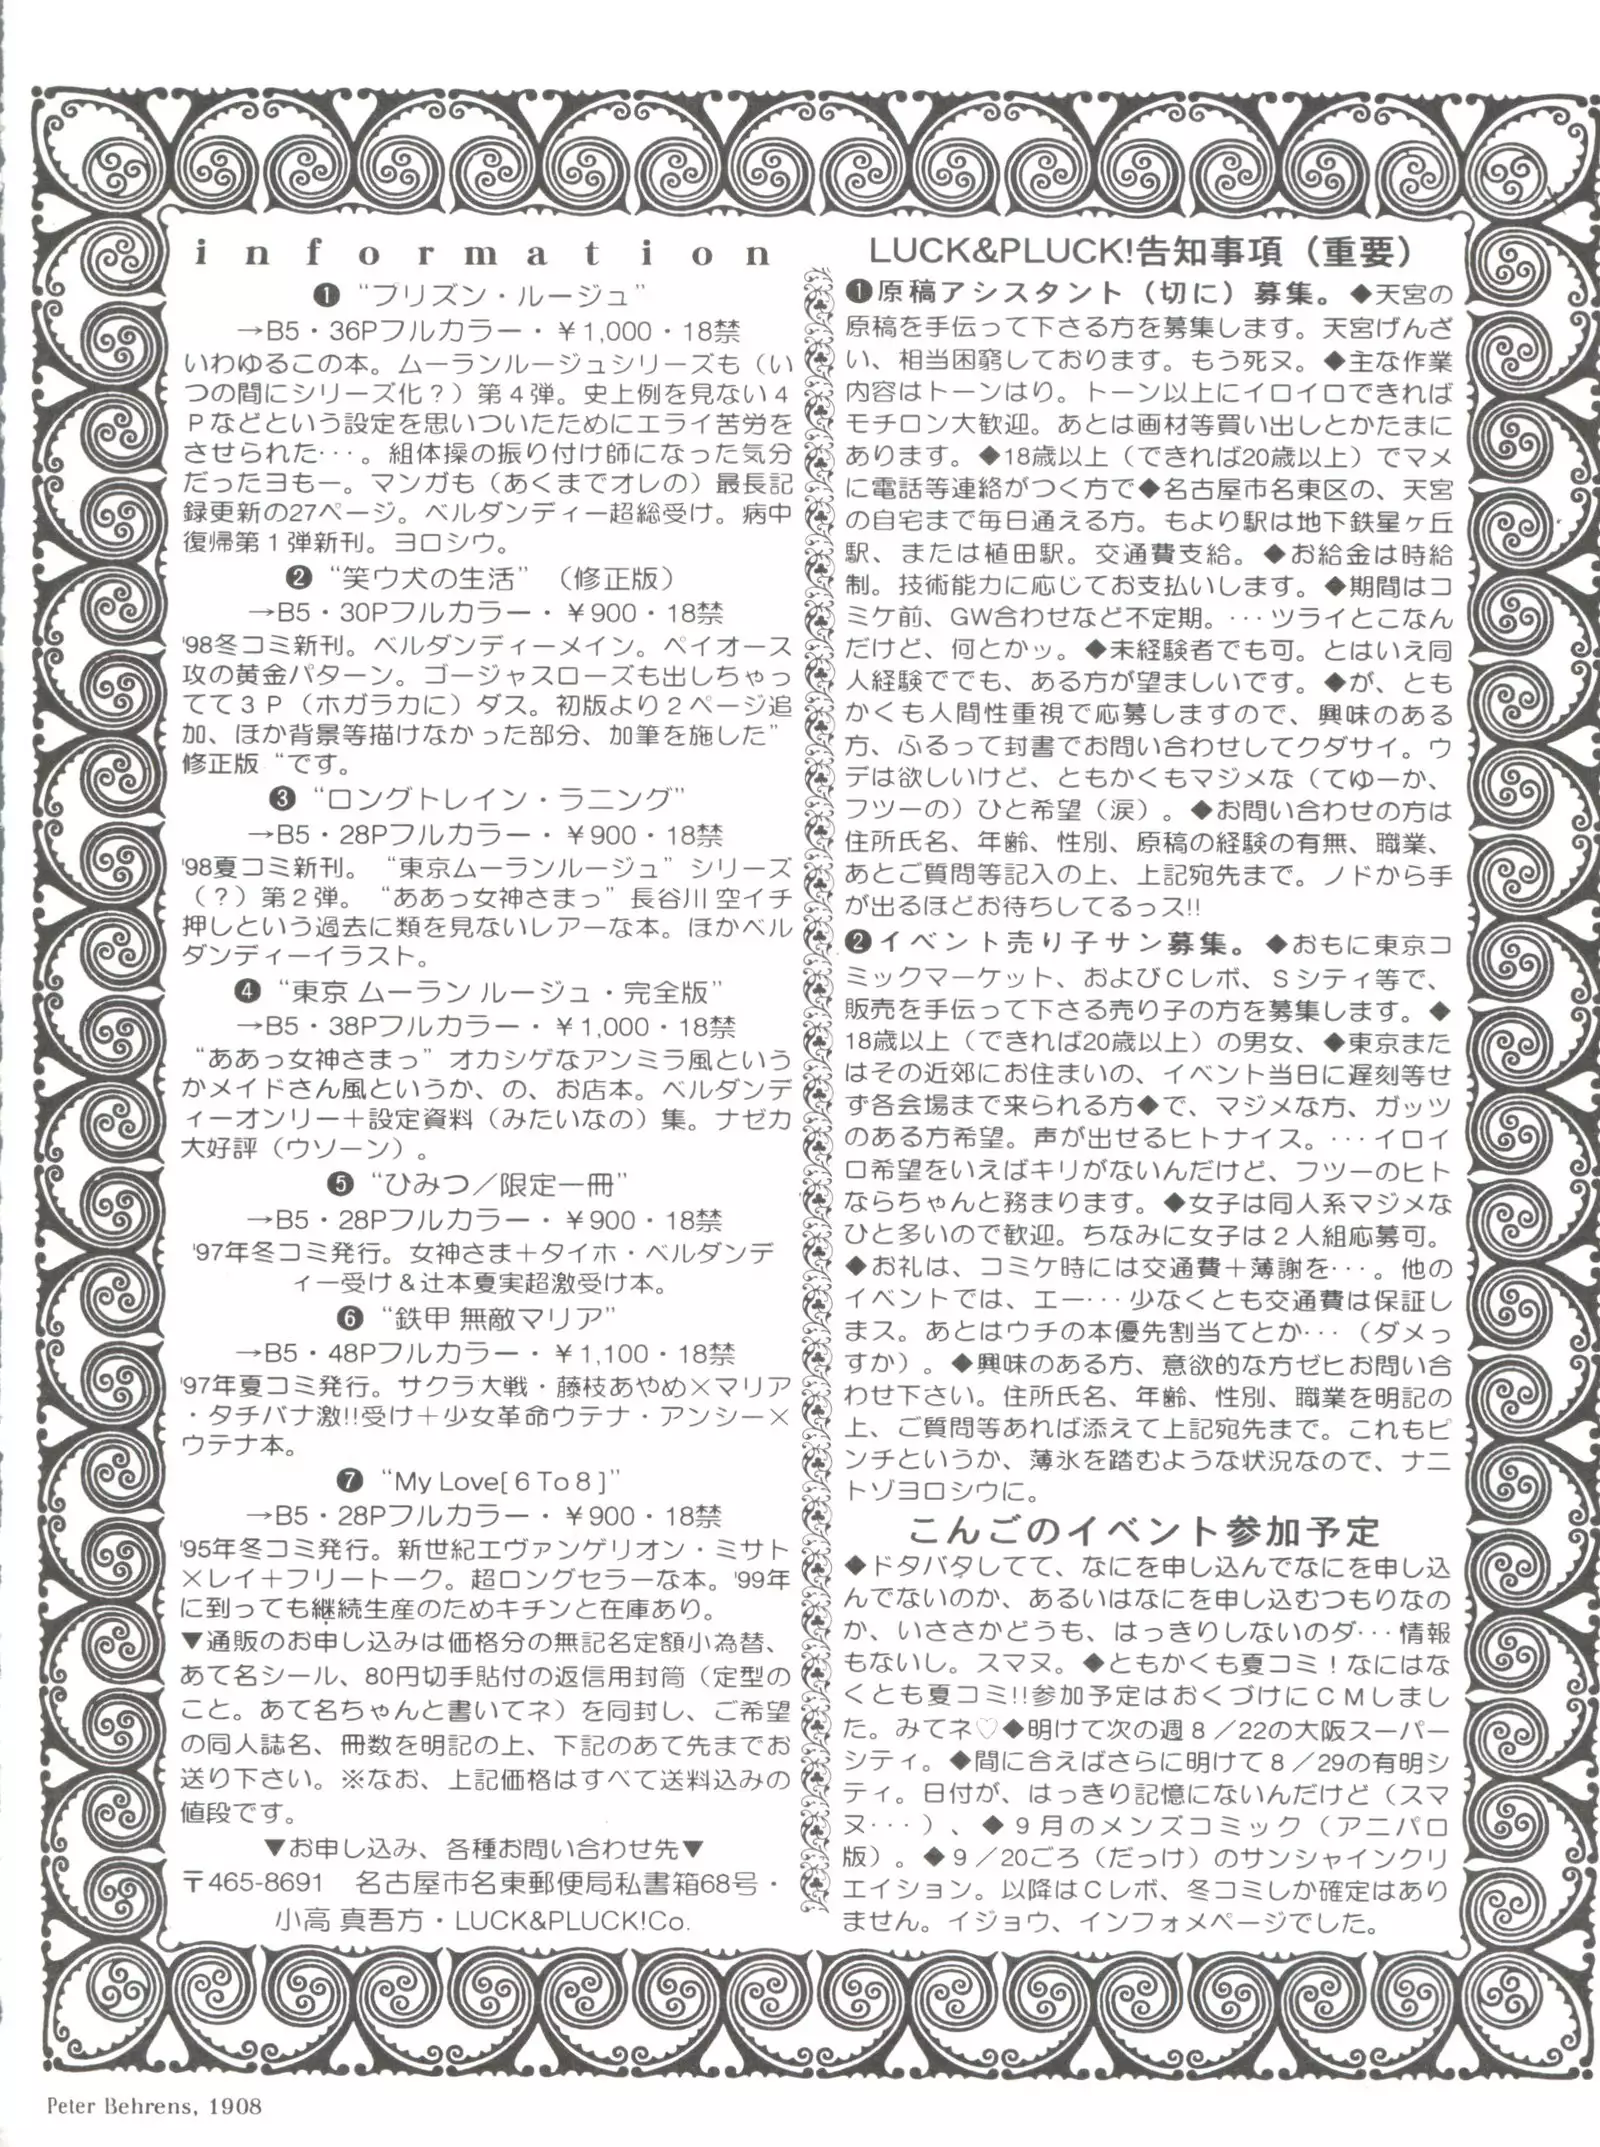 information
❶ “プリズン・ルージュ”
→B5・36Pフルカラー・￥1,000・18禁
いわゆるこの本。ムーランルージュシリーズも（い
つの間にシリーズ化？）第４弾。史上例を見ない４
Ｐなどという設定を思いついたためにエライ苦労を
させられた･･･。組体操の振り付け師になった気分
だったヨもー。マンガも（あくまでオレの）最長記
録更新の27ページ。ベルダンディー超総受け。病中
復帰第１弾新刊。ヨロシウ。
❷ “笑ウ犬の生活”（修正版）
→B5・30Pフルカラー・￥900・18禁
'98冬コミ新刊。ベルダンディーメイン。ペイオース
攻の黄金パターン。ゴージャスローズも出しちゃっ
てて３Ｐ（ホガラカに）ダス。初版より２ページ追
加、ほか背景等描けなかった部分、加筆を施した”
修正版“です。
❸ “ロングトレイン・ラニング”
→B5・28Pフルカラー・￥900・18禁
'98夏コミ新刊。“東京ムーランルージュ”シリーズ
（？）第２弾。“ああっ女神さまっ”長谷川空イチ
押しという過去に類を見ないレアーな本。ほかベル
ダンディーイラスト。
❹ “東京 ムーラン ルージュ・完全版”
→B5・38Pフルカラー・￥1,000・18禁
“ああっ女神さまっ”オカシゲなアンミラ風という
かメイドさん風というか、の、お店本。ベルダンデ
ィーオンリー＋設定資料（みたいなの）集。ナゼカ
大好評（ウソーン）。
❺ “ひみつ／限定一冊”
→B5・28Pフルカラー・￥900・18禁
'97年冬コミ発行。女神さま＋タイホ・ベルダンデ
ィー受け＆辻本夏実超激受け本。
❻ “鉄甲 無敵マリア”
→B5・48Pフルカラー・￥1,100・18禁
'97年夏コミ発行。サクラ大戦・藤枝あやめ×マリア
・タチバナ激!!受け＋少女革命ウテナ・アンシー×
ウテナ本。
❼ “My Love[６To８]”
→B5・28Pフルカラー・￥900・18禁
'95年冬コミ発行。新世紀エヴァンゲリオン・ミサト
×レイ＋フリートーク。超ロングセラーな本。'99年
に到っても継続生産のためキチンと在庫あり。
▼通販のお申し込みは価格分の無記名定額小為替、
あて名シール、80円切手貼付の返信用封筒（定型の
こと。あて名ちゃんと書いてネ）を同封し、ご希望
の同人誌名、冊数を明記の上、下記のあて先までお
送り下さい。※なお、上記価格はすべて送料込みの
値段です。
▼お申し込み、各種お問い合わせ先▼
〒465-8691　名古屋市名東郵便局私書箱68号・
小高 真吾方・LUCK&PLUCK!Co.
LUCK&PLUCK!告知事項（重要）
❶原稿アシスタント（切に）募集。◆天宮の
原稿を手伝って下さる方を募集します。天宮げんざ
い、相当困窮しております。もう死ヌ。◆主な作業
内容はトーンはり。トーン以上にイロイロできれば
モチロン大歓迎。あとは画材等買い出しとかたまに
あります。◆18歳以上（できれば20歳以上）でマメ
に電話等連絡がつく方で◆名古屋市名東区の、天宮
の自宅まで毎日通える方。もより駅は地下鉄星ヶ丘
駅、または植田駅。交通費支給。◆お給金は時給
制。技術能力に応じてお支払いします。◆期間はコ
ミケ前、GW合わせなど不定期。･･･ツライとこなん
だけど、何とかッ。◆未経験者でも可。とはいえ同
人経験ででも、ある方が望ましいです。◆が、とも
かくも人間性重視で応募しますので、興味のある
方、ふるって封書でお問い合わせしてクダサイ。ウ
デは欲しいけど、ともかくもマジメな（てゆーか、
フツーの）ひと希望（涙）。◆お問い合わせの方は
住所氏名、年齢、性別、原稿の経験の有無、職業、
あとご質問等記入の上、上記宛先まで。ノドから手
が出るほどお待ちしてるっス!!
❷イベント売り子サン募集。◆おもに東京コ
ミックマーケット、およびＣレボ、Ｓシティ等で、
販売を手伝って下さる売り子の方を募集します。◆
18歳以上（できれば20歳以上）の男女、◆東京また
はその近郊にお住まいの、イベント当日に遅刻等せ
ず各会場まで来られる方◆で、マジメな方、ガッツ
のある方希望。声が出せるヒトナイス。･･･イロイ
ロ希望をいえばキリがないんだけど、フツーのヒト
ならちゃんと務まります。◆女子は同人系マジメな
ひと多いので歓迎。ちなみに女子は２人組応募可。
◆お礼は、コミケ時には交通費＋薄謝を･･･。他の
イベントでは、エー･･･少なくとも交通費は保証し
まス。あとはウチの本優先割当てとか･･･（ダメっ
すか）。◆興味のある方、意欲的な方ゼヒお問い合
わせ下さい。住所氏名、年齢、性別、職業を明記の
上、ご質問等あれば添えて上記宛先まで。これもピ
ンチというか、薄氷を踏むような状況なので、ナニ
トゾヨロシウに。
こんごのイベント参加予定
◆ドタバタしてて、なにを申し込んでなにを申し込
んでないのか、あるいはなにを申し込むつもりなの
か、いささかどうも、はっきりしないのダ･･･情報
もないし。スマヌ。◆ともかくも夏コミ！なにはな
くとも夏コミ!!参加予定はおくづけにＣＭしまし
た。みてネ♡◆明けて次の週８／22の大阪スーパー
シティ。◆間に合えばさらに明けて８／29の有明シ
ティ。日付が、はっきり記憶にないんだけど（スマ
ヌ･･･）、◆９月のメンズコミック（アニパロ
版）。◆９／20ごろ（だっけ）のサンシャインクリ
エイション。以降はＣレボ、冬コミしか確定はあり
ません。イジョウ、インフォメページでした。
Peter Behrens, 1908